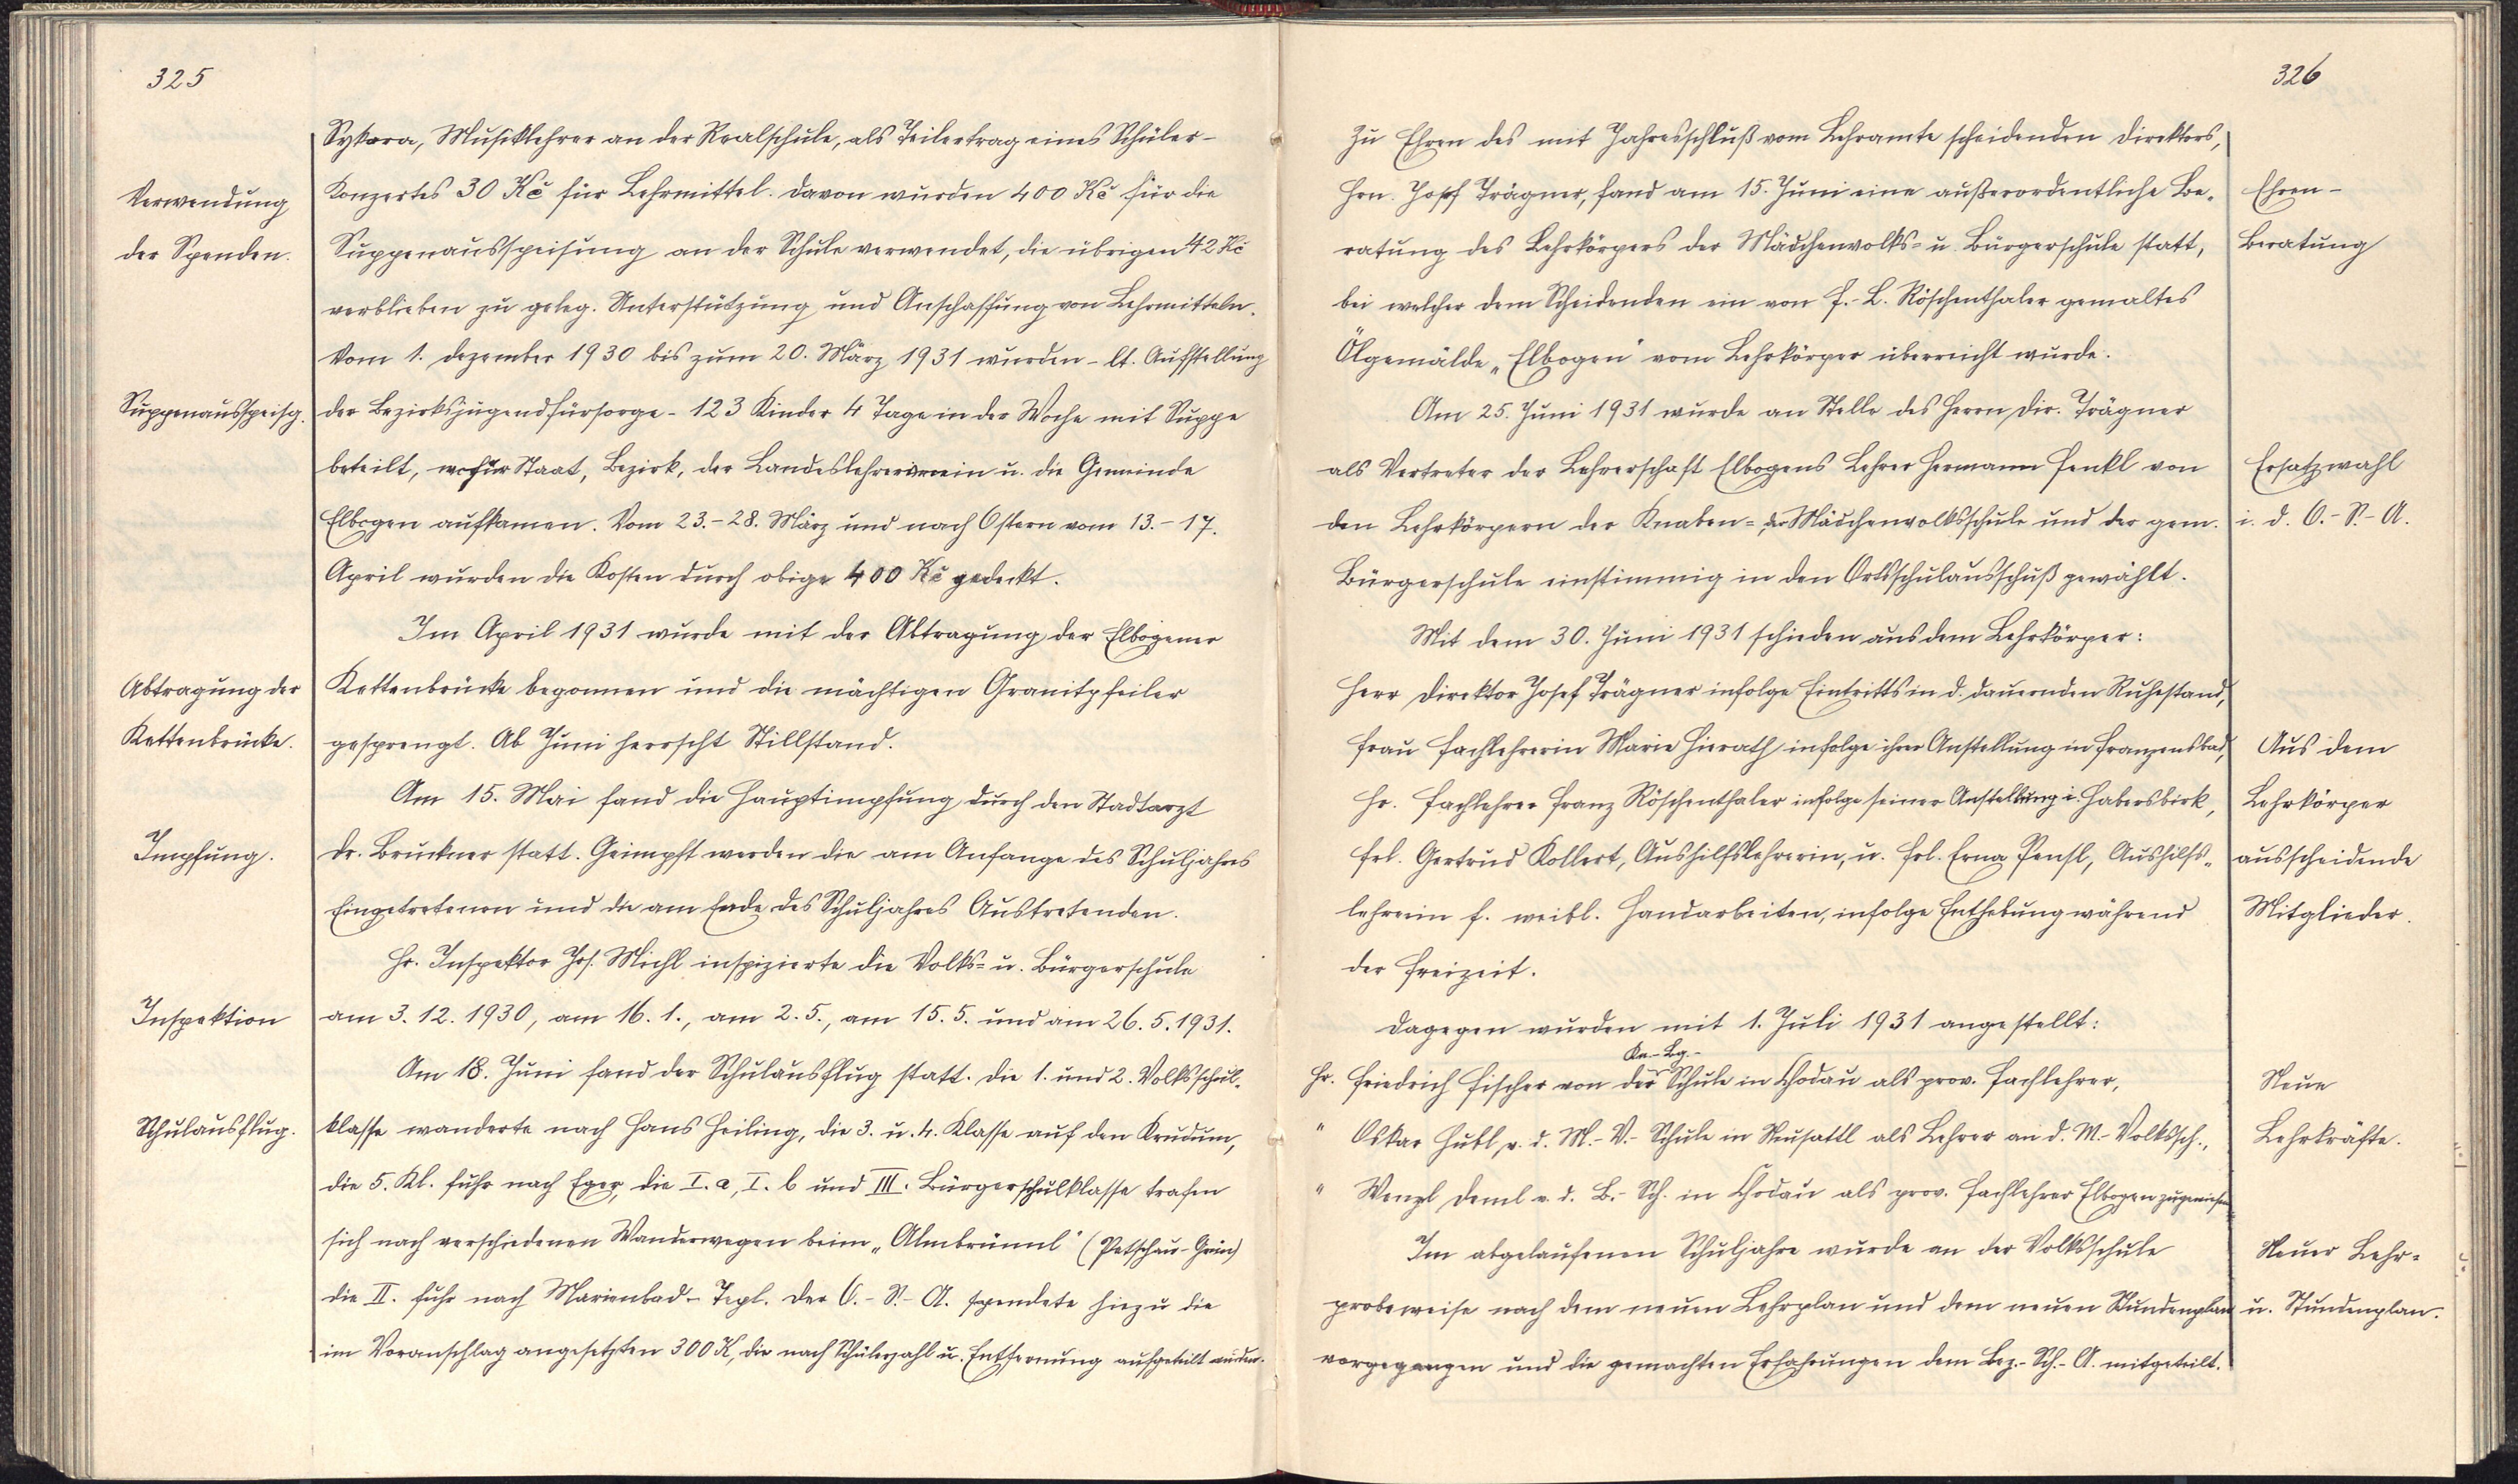 325
Sykora, Musiklehrer an der Realschule, als Teilertrag eines Schüler-
Verwendung
Konzertes 30 Kč für Lehrmittel. Davon wurden 400 Kč für die
der Spenden.
Suppenausspeisung an der Schule verwendet, die übrigen 42 Kč
verblieben zu geleg. Unterstützung und Anschaffung von Lehrmitteln.
Vom 1. Dezember 1930 bis zum 20. März 1931 wurden - lt. Aufstellung
Suppenausspeisg.
der Bezirksjugendfürsorge - 123 Kinder 4 Tage in der Woche mit Suppe
beteilt, wofür Staat, Bezirk, der Landeslehrerverein u. die Gemeinde
Elbogen aufkamen. Vom 23.-28. März und nach Ostern vom 13.-17.
April wurden die Kosten durch obige 400 Kč gedeckt.
Im April 1931 wurde mit der Abtragung der Elbogener
Abtragung der
Kettenbrücke begonnen und die mächtigen Granitpfeiler
Kettenbrücke.
gesprengt. Ab Juni herrscht Stillstand.
Am 15. Mai fand die Hauptimpfung durch den Stadtarzt
Impfung.
Dr. Bruckner statt. Geimpft werden die am Anfange des Schuljahres
Eingetretenen und die am Ende des Schuljahres Austretenden.
Hr. Inspektor Jos. Michl inspizierte die Volks- u. Bürgerschule
Inspektion
am 3. 12. 1930, am 16. 1., am 2. 5., am 15. 5. und am 26. 5. 1931.
Am 18. Juni fand der Schulausflug statt. Die 1. und 2. Volksschul-
Schulausflug.
klasse wanderte nach Hans Heiling, die 3. u. 4. Klasse auf den Krudum,
die 5. Kl. fuhr nach Eger, die I. a, I. b und III. Bürgerschulklasse trafen
sich nach verschiedenen Wanderwegen beim „Almbrünnl“ (Petschau-Grün)
die II. fuhr nach Marienbad - Tepl. Der O.-S.-A. spendete hiezu die
im Voranschlag angesetzten 300 K, die nach Schülerzahl u. Entfernung aufgeteilt wurden.
326
Zu Ehren des mit Jahresschluß vom Lehramte scheidenden Direktors,
Hrn. Josef Trägner, fand am 15. Juni eine außerordentliche Be-
Ehren-
ratung des Lehrkörpers der Mädchenvolks- u. Bürgerschule statt,
Beratung
bei welcher dem Scheidenden ein von F.-L. Röschenthaler gemaltes
Ölgemälde „Elbogen“ vom Lehrkörper überreicht wurde.
Am 25. Juni 1931 wurde an Stelle des Herrn Dir. Trägner
als Vertreter der Lehrerschaft Elbogens Lehrer Hermann Fenkl von
Ersatzwahl
den Lehrkörpern der Knaben-, der Mädchenvolksschule und der gem.
i. d. O.-S.-A.
Bürgerschule einstimmig in den Ortsschulausschuß gewählt.
Mit dem 30. Juni 1931 schieden aus dem Lehrkörper:
Herr Direktor Josef Trägner infolge Eintritts in d. dauernden Ruhestand,
Frau Fachlehrerin Marie Hierath infolge ihrer Anstellung in Franzensbad,
Aus dem
Hr. Fachlehrer Franz Röschenthaler infolge seiner Anstellung i. Habersbirk,
Lehrkörper
Frl. Gertrud Kollert, Aushilfslehrerin, u. Frl. Erna Pensl, Aushilfs-
ausscheidende
lehrerin f. weibl. Handarbeiten, infolge Enthebung während
Mitglieder.
der Freizeit.
Dagegen wurden mit 1. Juli 1931 angestellt:
Kn.-Bg.-
Hr. Friedrich Fischer von der Schule in Chodau als prov. Fachlehrer,
Neue
" Oskar Hubl, v. d. M.-V.-Schule in Neusattl als Lehrer an d. M.-Volkssch.,
Lehrkräfte.
" Wenzl Deml v. d. B.-Sch. in Chodau als prov. Fachlehrer Elbogen zugewiesen
Im abgelaufenen Schuljahre wurde an der Volksschule
Neuer Lehr-
probeweise nach dem neuen Lehrplan und dem neuen Stundenplan
u. Stundenplan.
vorgegangen und die gemachten Erfahrungen dem Bez.-Sch.-A. mitgeteilt.